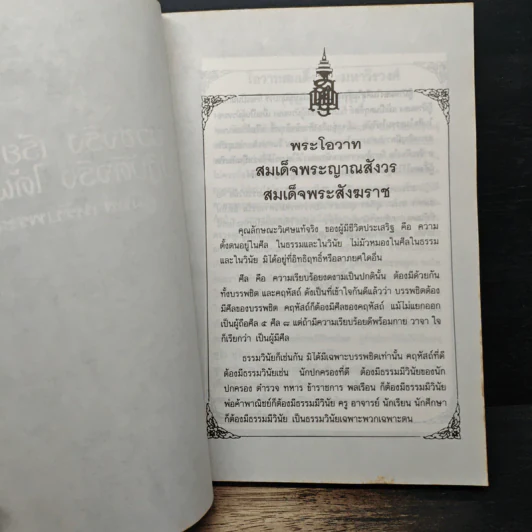 พระโอวาท
สมเด็จพระญาณสังวร
สมเด็จพระสังฆราช
คุณลักษณะวิเศษแท้จริง ของผู้มีชีวิตประเสริฐ คือ ความ
ตั้งตนอยู่ในศีล ในธรรมและในวินัย ไม่มัวหมองในศีลในธรรม
และในวินัย มิได้อยู่ที่อิทธิฤทธิ์หรือลาภยศใดอื่น
ศีล คือ ความเรียบร้อยงดงามเป็นปกตินั้น ต้องมีด้วยกัน
ทั้งบรรพชิต และคฤหัสถ์ ดังเป็นที่เข้าใจกันดีแล้วว่า บรรพชิตต้อง
มีศีลของบรรพชิต คฤหัสถ์ก็ต้องมีศีลของคฤหัสถ์ แม้ไม่แยกออก
เป็นผู้ถือศีล ๕ ศีล ๘ แต่ถ้ามีความเรียบร้อยดีพร้อมกาย วาจา ใจ
ก็เรียกว่า เป็นผู้มีศีล
ธรรมวินัยก็เช่นกัน มิได้มีเฉพาะบรรพชิตเท่านั้น คฤหัสถ์ที่ดี
ต้องมีธรรมวินัยเช่น นักปกครองที่ดี ต้องมีธรรมมีวินัยของนัก
ปกครอง ตำรวจ ทหาร ข้าราชการ พลเรือน ก็ต้องมีธรรมมีวินัย
พ่อค้าพาณิชย์ก็ต้องมีธรรมมีวินัย ครู อาจารย์ นักเรียน นักศึกษา
ก็ต้องมีธรรมมีวินัย เป็นธรรมวินัยเฉพาะพวกเฉพาะตน